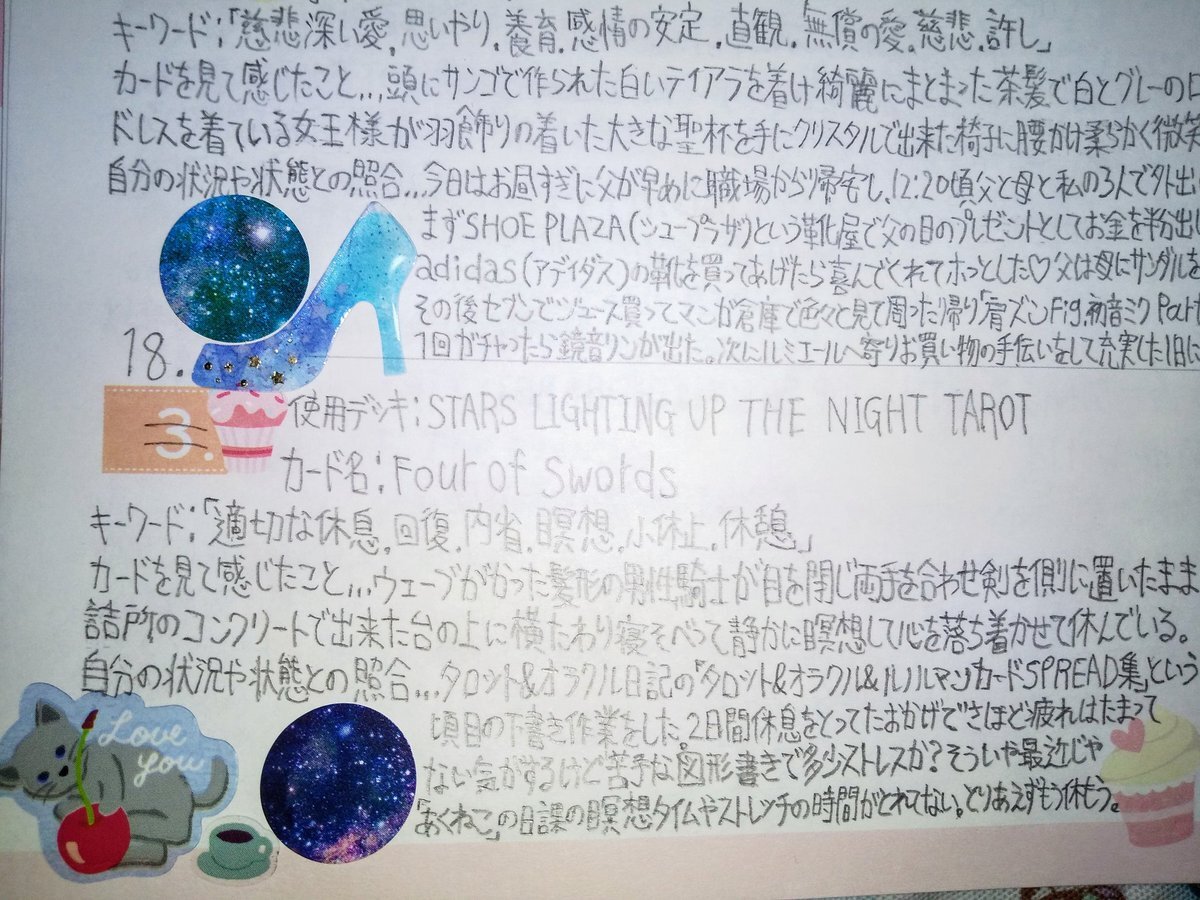 キーワード;「慈悲深い愛.思いやり.養育.感情の安定.直観.無償の愛.慈悲.許し」
カードを見て感じたこと...頭にサンゴで作られた白いティアラを着け綺麗にまとまった茶髪で白とグレーの
ドレスを着ている女王様が羽飾りの着いた大きな聖杯を手にクリスタルで出来た椅子に腰かけ柔らかく微笑
自分の状況や状態との照合...今日はお昼すぎに父が早めに職場から帰宅し、12:20頃父と母と私の3人で外出
まずSHOE PLAZA(シュープラザ)という靴屋で父の日のプレゼントとしてお金を半分出し
adidas(アディダス)の靴を買ってあげたら喜んでくれてホッとした♡父は母にサンダルを
その後セブンでジュース買ってマンガ倉庫で色々と見て周った帰り「肩ズンFig.初音ミク Part
1回ガチャったら鏡音リンが出た。次にルミエールへ寄りお買い物の手伝いをして充実した1日に
18.
3.
使用デッキ;STARS LIGHTING UP THE NIGHT TAROT
カード名;Four of Swords
キーワード;「適切な休息.回復.内省.瞑想.小休止.休憩」
カードを見て感じたこと...ウェーブがかった髪形の男性騎士が目を閉じ両手を合わせ剣を側に置いたまま
詰所のコンクリートで出来た台の上に横たわり寝そべって静かに瞑想して心を落ち着かせて休んでいる。
自分の状況や状態との照合...タロット&オラクル日記の「タロット&オラクル&ルノルマンカードSPREAD集」という
項目の下書き作業をした。2日間休息をとってたおかげでさほど疲れはたまって
ない気がするけど苦手な図形書きで多少ストレスか?そういや最近じゃ
「あくねこ」の日課の瞑想タイムやストレッチの時間がとれてない。とりあえずもう休もう。
Love
you